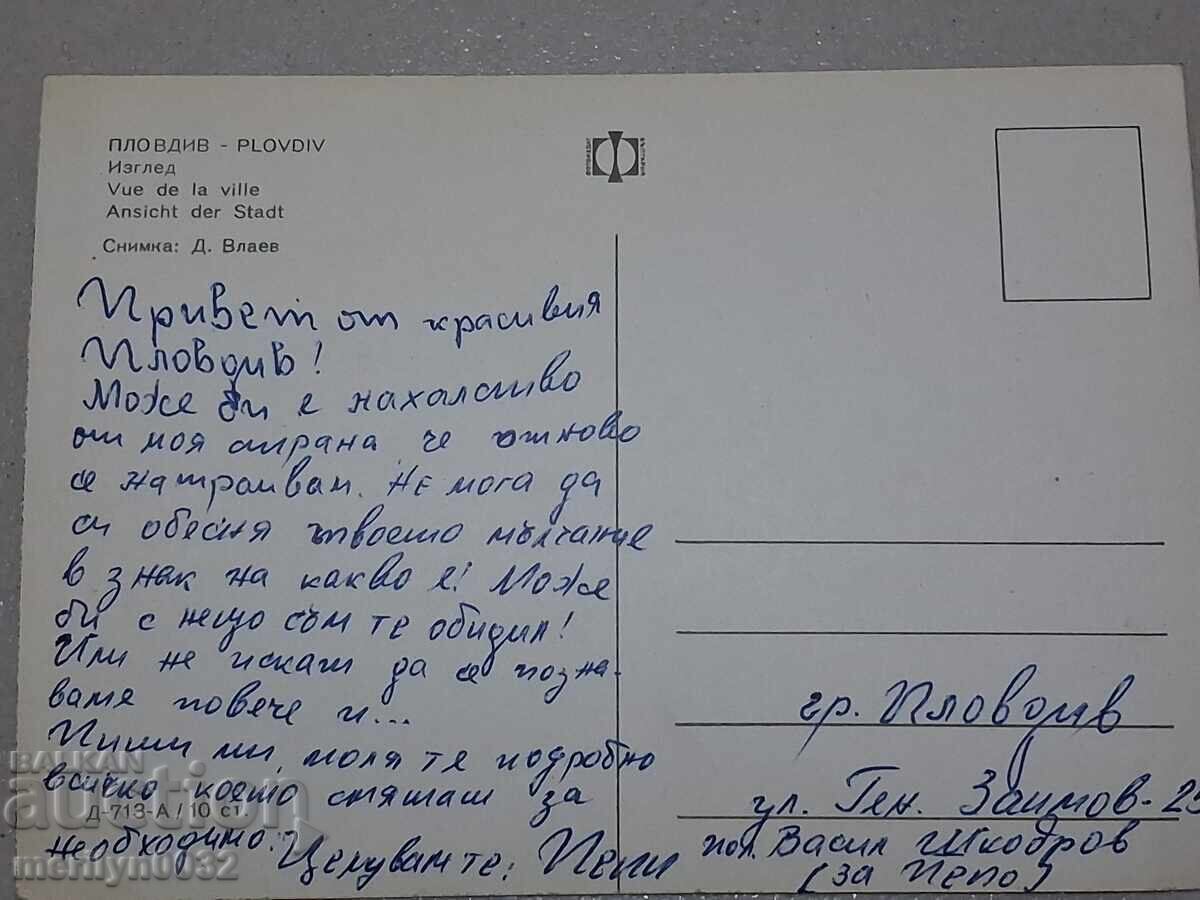 ПЛОВДИВ - PLOVDIV
Изглед
Vue de la ville
Ansicht der Stadt
Снимка: Д. Влаев
Привет от красивия
Пловдив!
Може би е нахалство
от моя страна че отново
се натрапвам. Не мога да
си обесня твоето мълчание
в знак на какво е! Може
би с нещо съм те обидил!
Или не искаш да се позна-
ваме повече и...
Пиши ми, моля те подробно
всичко което смяташ за
необходимо.
Целувам те: Пепи
Д-713-А / 10 ст.
гр. Пловдив
ул. Ген. Заимов - 25
пол. Васил Шкодров
(за Пепо)
BALKAN
auction
merlyn0032